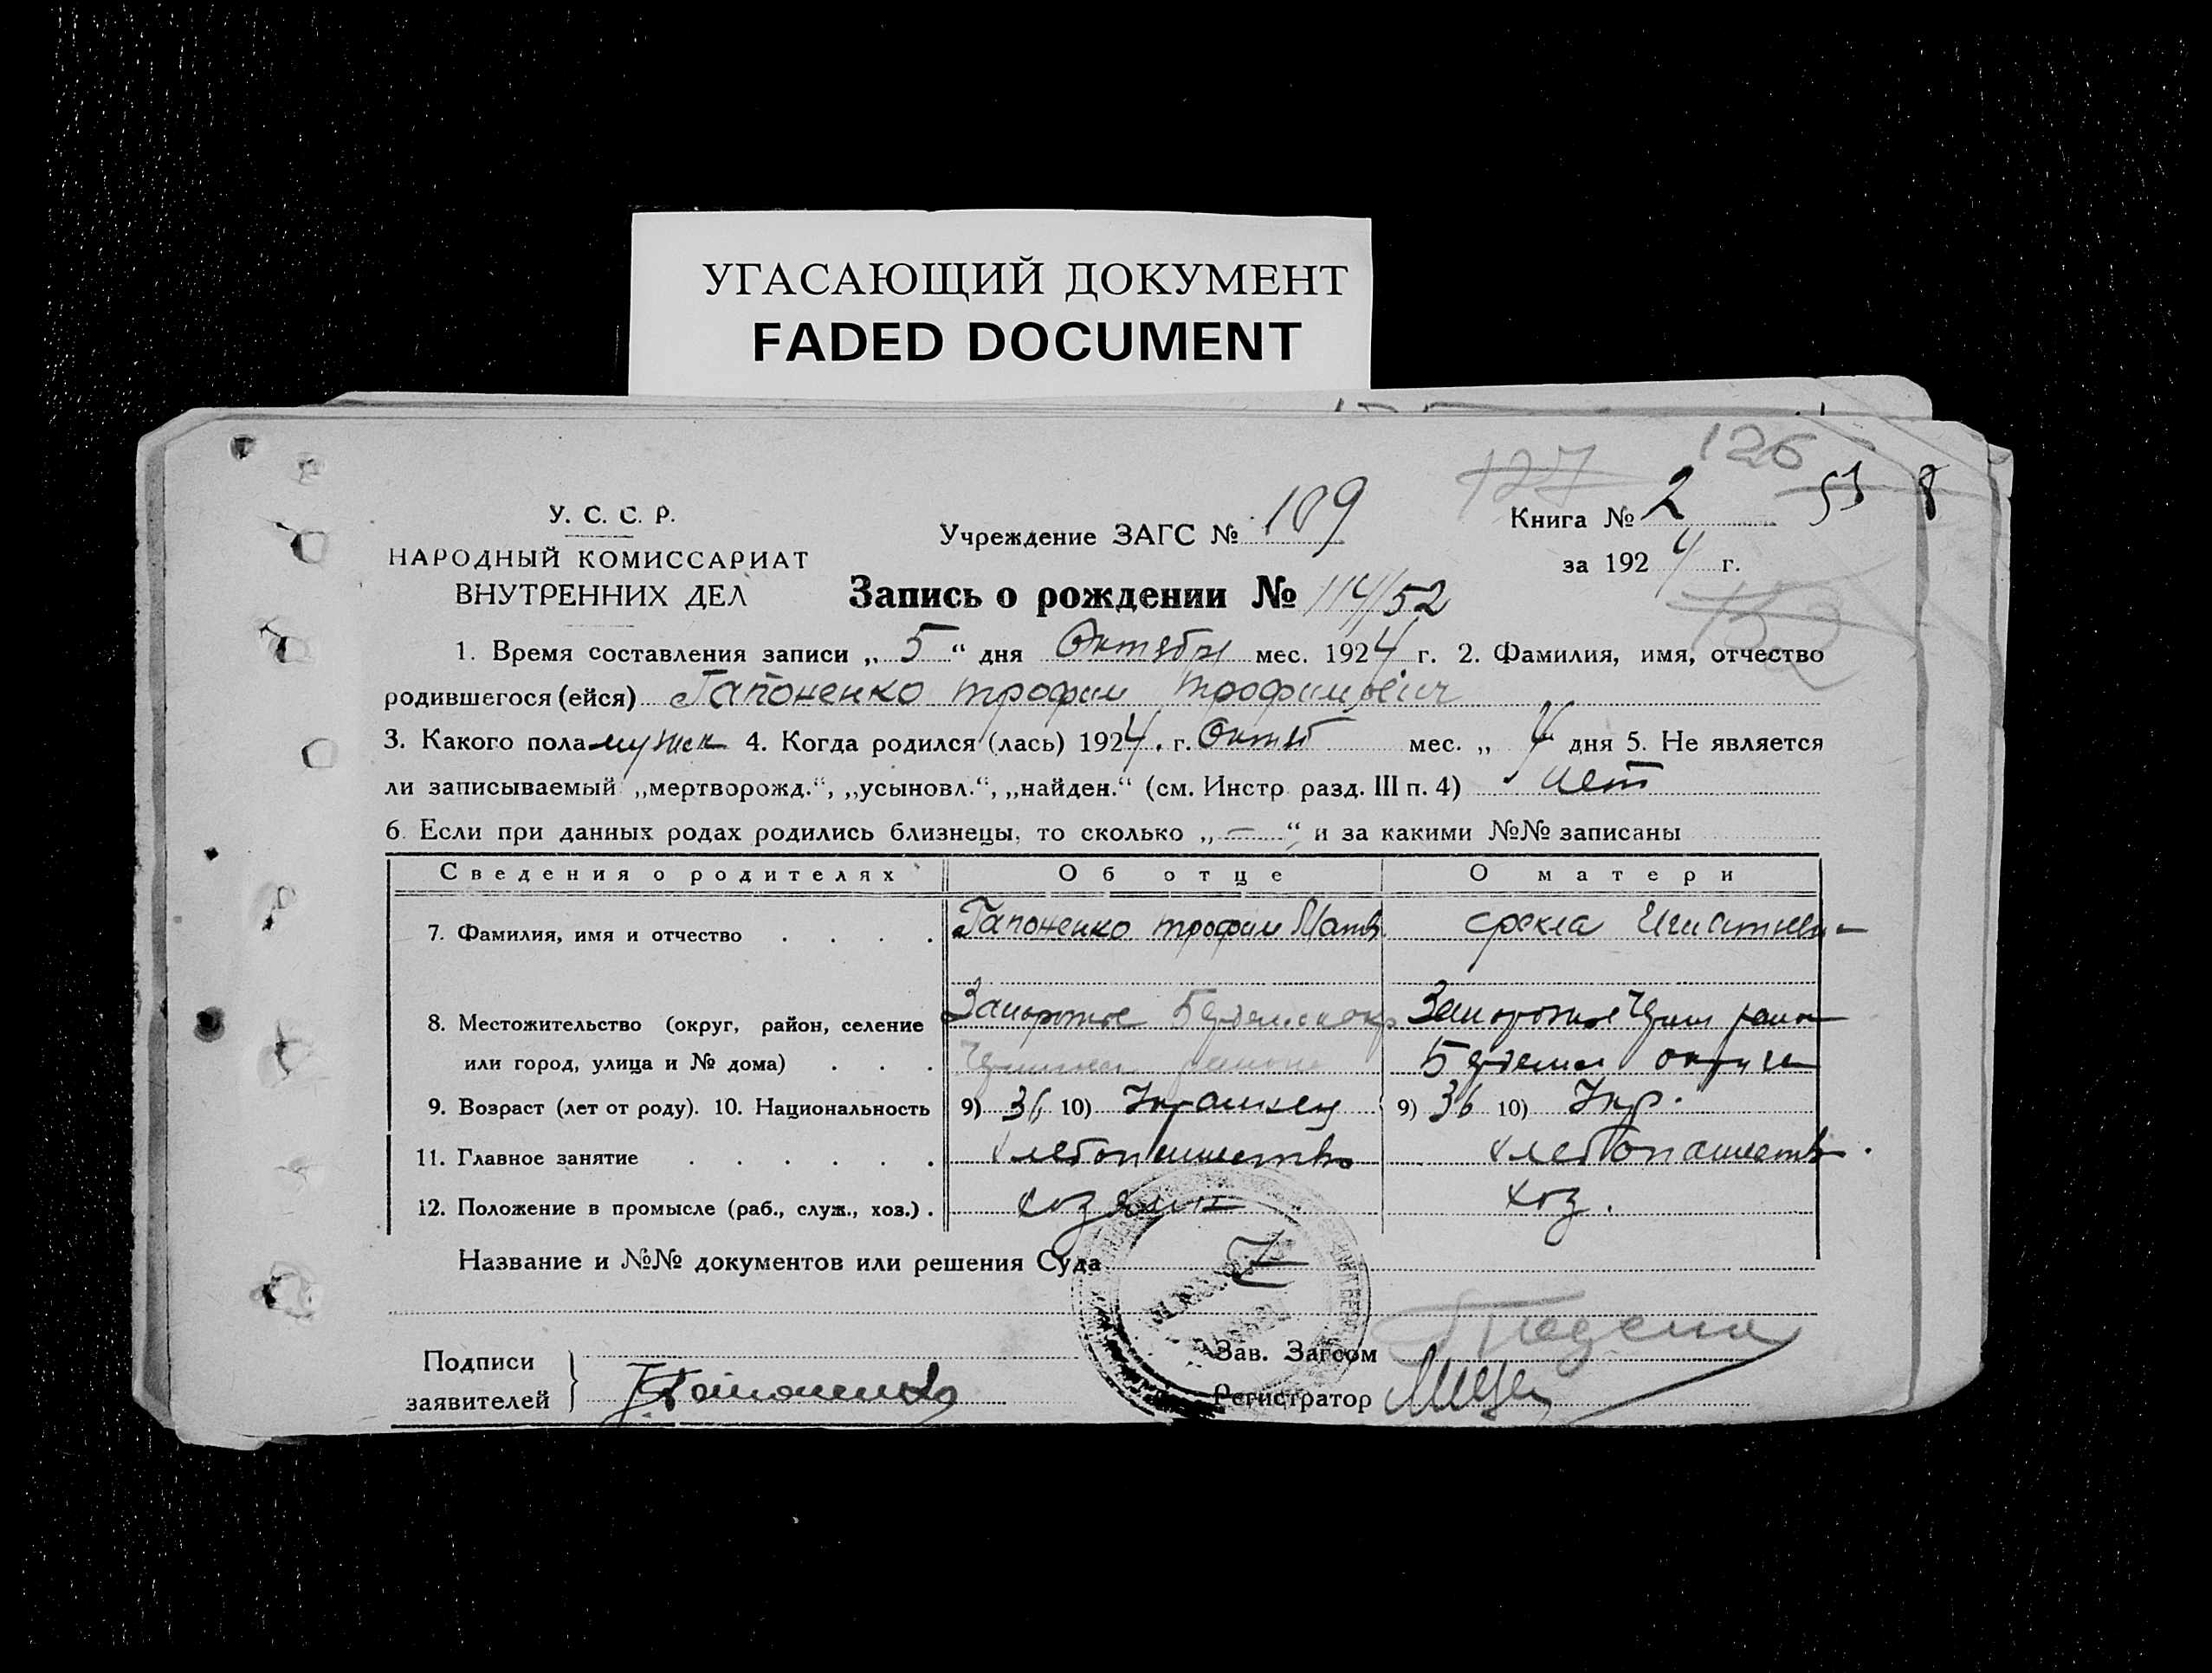 УГАСАЮЩИЙ ДОКУМЕНТ
FADED DOCUMENT
127 126
У. С. С. Р.
Учреждение ЗАГС № 109
Книга № 2 53 8
НАРОДНЫЙ КОМИССАРИАТ
ВНУТРЕННИХ ДЕЛ
за 1924 г.
Запись о рождении № 114/52
1. Время составления записи „ 5 “ дня Октября мес. 1924 г. 2. Фамилия, имя, отчество
родившегося (ейся) Гапоненко трофим трофимович
3. Какого пола мужск 4. Когда родился (лась) 1924 г. Октяб мес. „ 4 дня 5. Не является
ли записываемый „мертворожд.“, „усыновл.“, „найден.“ (см. Инстр. разд. III п. 4) нет
6. Если при данных родах родились близнецы, то сколько „ — “ и за какими №№ записаны
Сведения о родителях Об отце О матери
7. Фамилия, имя и отчество . . . . Гапоненко трофим Матв. фекла Игнатьевн
8. Местожительство (округ, район, селение Запорожье Бердянск окр Запорожье район
или город, улица и № дома) . . . района Бердянск округа
9. Возраст (лет от роду). 10. Национальность 9) 36 10) Украинец 9) 36 10) Укр.
11. Главное занятие . . . . . . хлебопашество хлебопашеств.
12. Положение в промысле (раб., служ., хоз.) . хозяин хоз.
Название и №№ документов или решения Суда
Подписи
заявителей
Гапоненко
Зав. Загсом
Регистратор